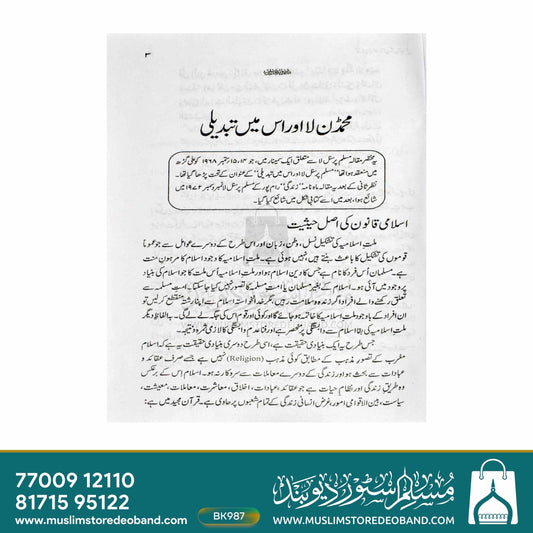 ۳
محمڈن لا اور اس میں تبدیلی
یہ مختصر مقالہ مسلم پرسنل لا سے متعلق ایک سمینار میں، جو ۱۴، ۱۵ ستمبر ۱۹۶۸ کو علی گڑھ
میں منعقد ہوا تھا "مسلم پرسنل لا اور اس میں تبدیلی" کے عنوان کے تحت پڑھا گیا تھا۔
نظر ثانی کے بعد یہ مقالہ ماہ نامہ "زندگی" رام پور کے مسلم پرسنل لا نمبر دسمبر ۱۹۷۲ میں
شائع ہوا، بعد میں اسے کتابی شکل میں شائع کیا گیا۔
اسلامی قانون کی اصل حیثیت
ملتِ اسلامیہ کی تشکیل نسل، وطن، زبان اور اس طرح کے دوسرے عوامل سے جو عموماً
قوموں کی تشکیل کا باعث بنتے ہیں، نہیں ہوئی ہے۔ ملتِ اسلامیہ کا وجود اسلام کا مرہونِ منت
ہے۔ مسلمان اس فرد کا نام ہے جس کا دین اسلام ہو اور ملتِ اسلامیہ اُس ملت کا جو اسلام کی بنیاد
پر وجود میں آئی ہو۔ اسلام کے بغیر مسلمان یا امتِ مسلمہ کا تصور نہیں کیا جا سکتا۔ امتِ مسلمہ سے
تعلق رکھنے والے افراد اگر زندہ و سلامت رہیں، مگر خدانخواستہ اسلام سے اپنا رشتہ منقطع کر لیں تو
ان افراد کے باوجود ملتِ اسلامیہ کا خاتمہ ہو جائے گا اور کوئی اور قوم اس کی جگہ لے لے گی۔ بہ الفاظ دیگر
ملتِ اسلامیہ کی بقا اسلام سے وابستگی پر منحصر ہے اور فنا عدم وابستگی کا لازمی ثمرہ و نتیجہ۔
جس طرح یہ ایک بنیادی حقیقت ہے، اسی طرح دوسری بنیادی حقیقت یہ ہے کہ اسلام
مغرب کے تصورِ مذہب کے مطابق کوئی مذہب (Religion) نہیں ہے جسے صرف عقائد و
عبادات سے بحث ہو اور زندگی کے دوسرے معاملات سے سروکار نہ ہو۔ اسلام اس کے برعکس
وہ طریقِ زندگی اور نظام حیات ہے جو عقائد، عبادات، اخلاق، معاشرت، معاملات، معیشت،
سیاست، بین الاقوامی امور، غرض انسانی زندگی کے تمام شعبوں پر حاوی ہے۔ قرآن مجید میں ہے:
77009 12110
81715 95122
www.muslimstoredeoband.com
BK987
مسلم سٹور دیوبند
WWW.MUSLIMSTOREDEOBAND.COM